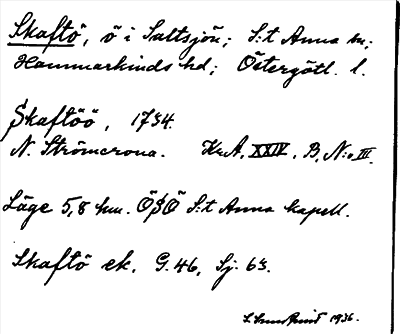 Skaftö, ö i Saltsjön; S:t Anna sn;
Hammarkinds hd; Östergötl. l.
Skaftöö, 1734.
N. Strömcrona. Kr.A, XXIV, B, N:o III.
Läge 5,8 km. ÖSÖ S:t Anna kapell.
Skaftö ek. G. 46, Sj. 63.
1936.